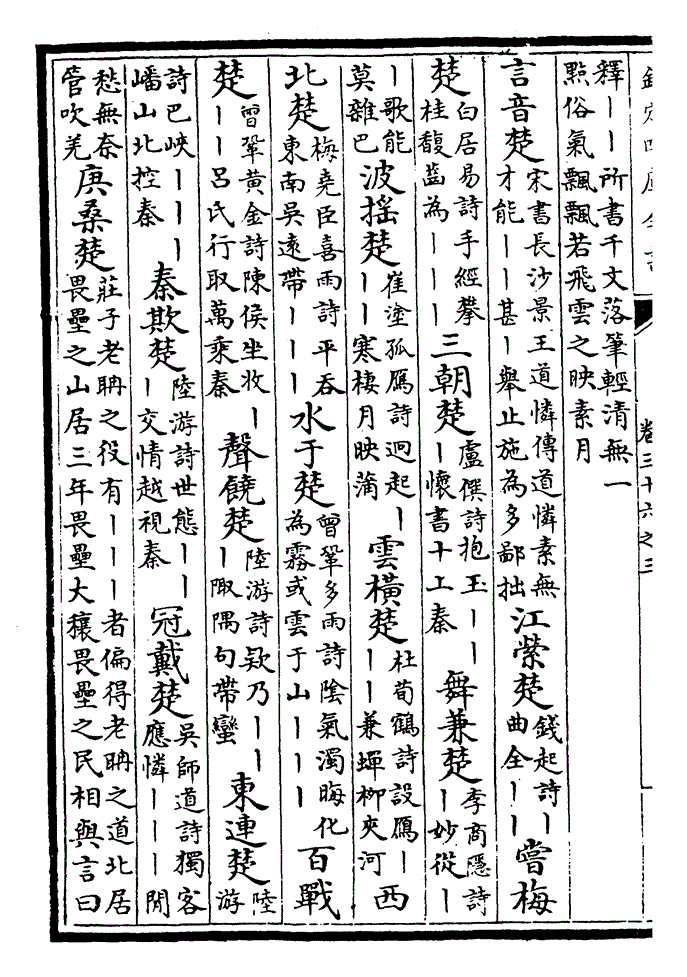 欽定四庫全書 卷三十六之三
釋丨丨所書千文落筆輕清無一
點俗氣飄飄若飛雲之映素月
言音楚
宋書長沙景王道憐傳道憐素無
才能丨丨甚丨舉止施為多鄙拙
江縈楚
錢起詩丨
曲全丨丨
嘗梅
楚
白居易詩手經攀
桂馥齒為丨丨丨
三朝楚
盧僎詩抱玉丨丨
丨懷書十上秦
舞兼楚
李商隱詩
丨妙從丨
丨歌能
莫雜巴
波揺楚
崔塗孤鴈詩迥起丨
丨丨寒棲月映蒲
雲橫楚
杜荀鶴詩設鴈丨
丨丨兼蟬柳夾河
西
北楚
梅堯臣喜雨詩平吞
東南吳遠帶丨丨丨
水于楚
曾鞏多雨詩陰氣濁晦化
為霧或雲于山丨丨丨
百戰
楚
曾鞏黃金詩陳侯坐收丨
丨丨呂氏行取萬乘秦
聲饒楚
陸游詩欵乃丨丨
丨陬隅句帶蠻
東連楚
陸
游
詩巴峽丨丨丨
嶓山北控秦
秦欺楚
陸游詩世態丨丨
丨交情越視秦
冠戴楚
吳師道詩獨客
應憐丨丨丨閒
愁無奈
管吹羌
庚桑楚
莊子老聃之役有丨丨丨者偏得老聃之道北居
畏壘之山居三年畏壘大穰畏壘之民相與言曰